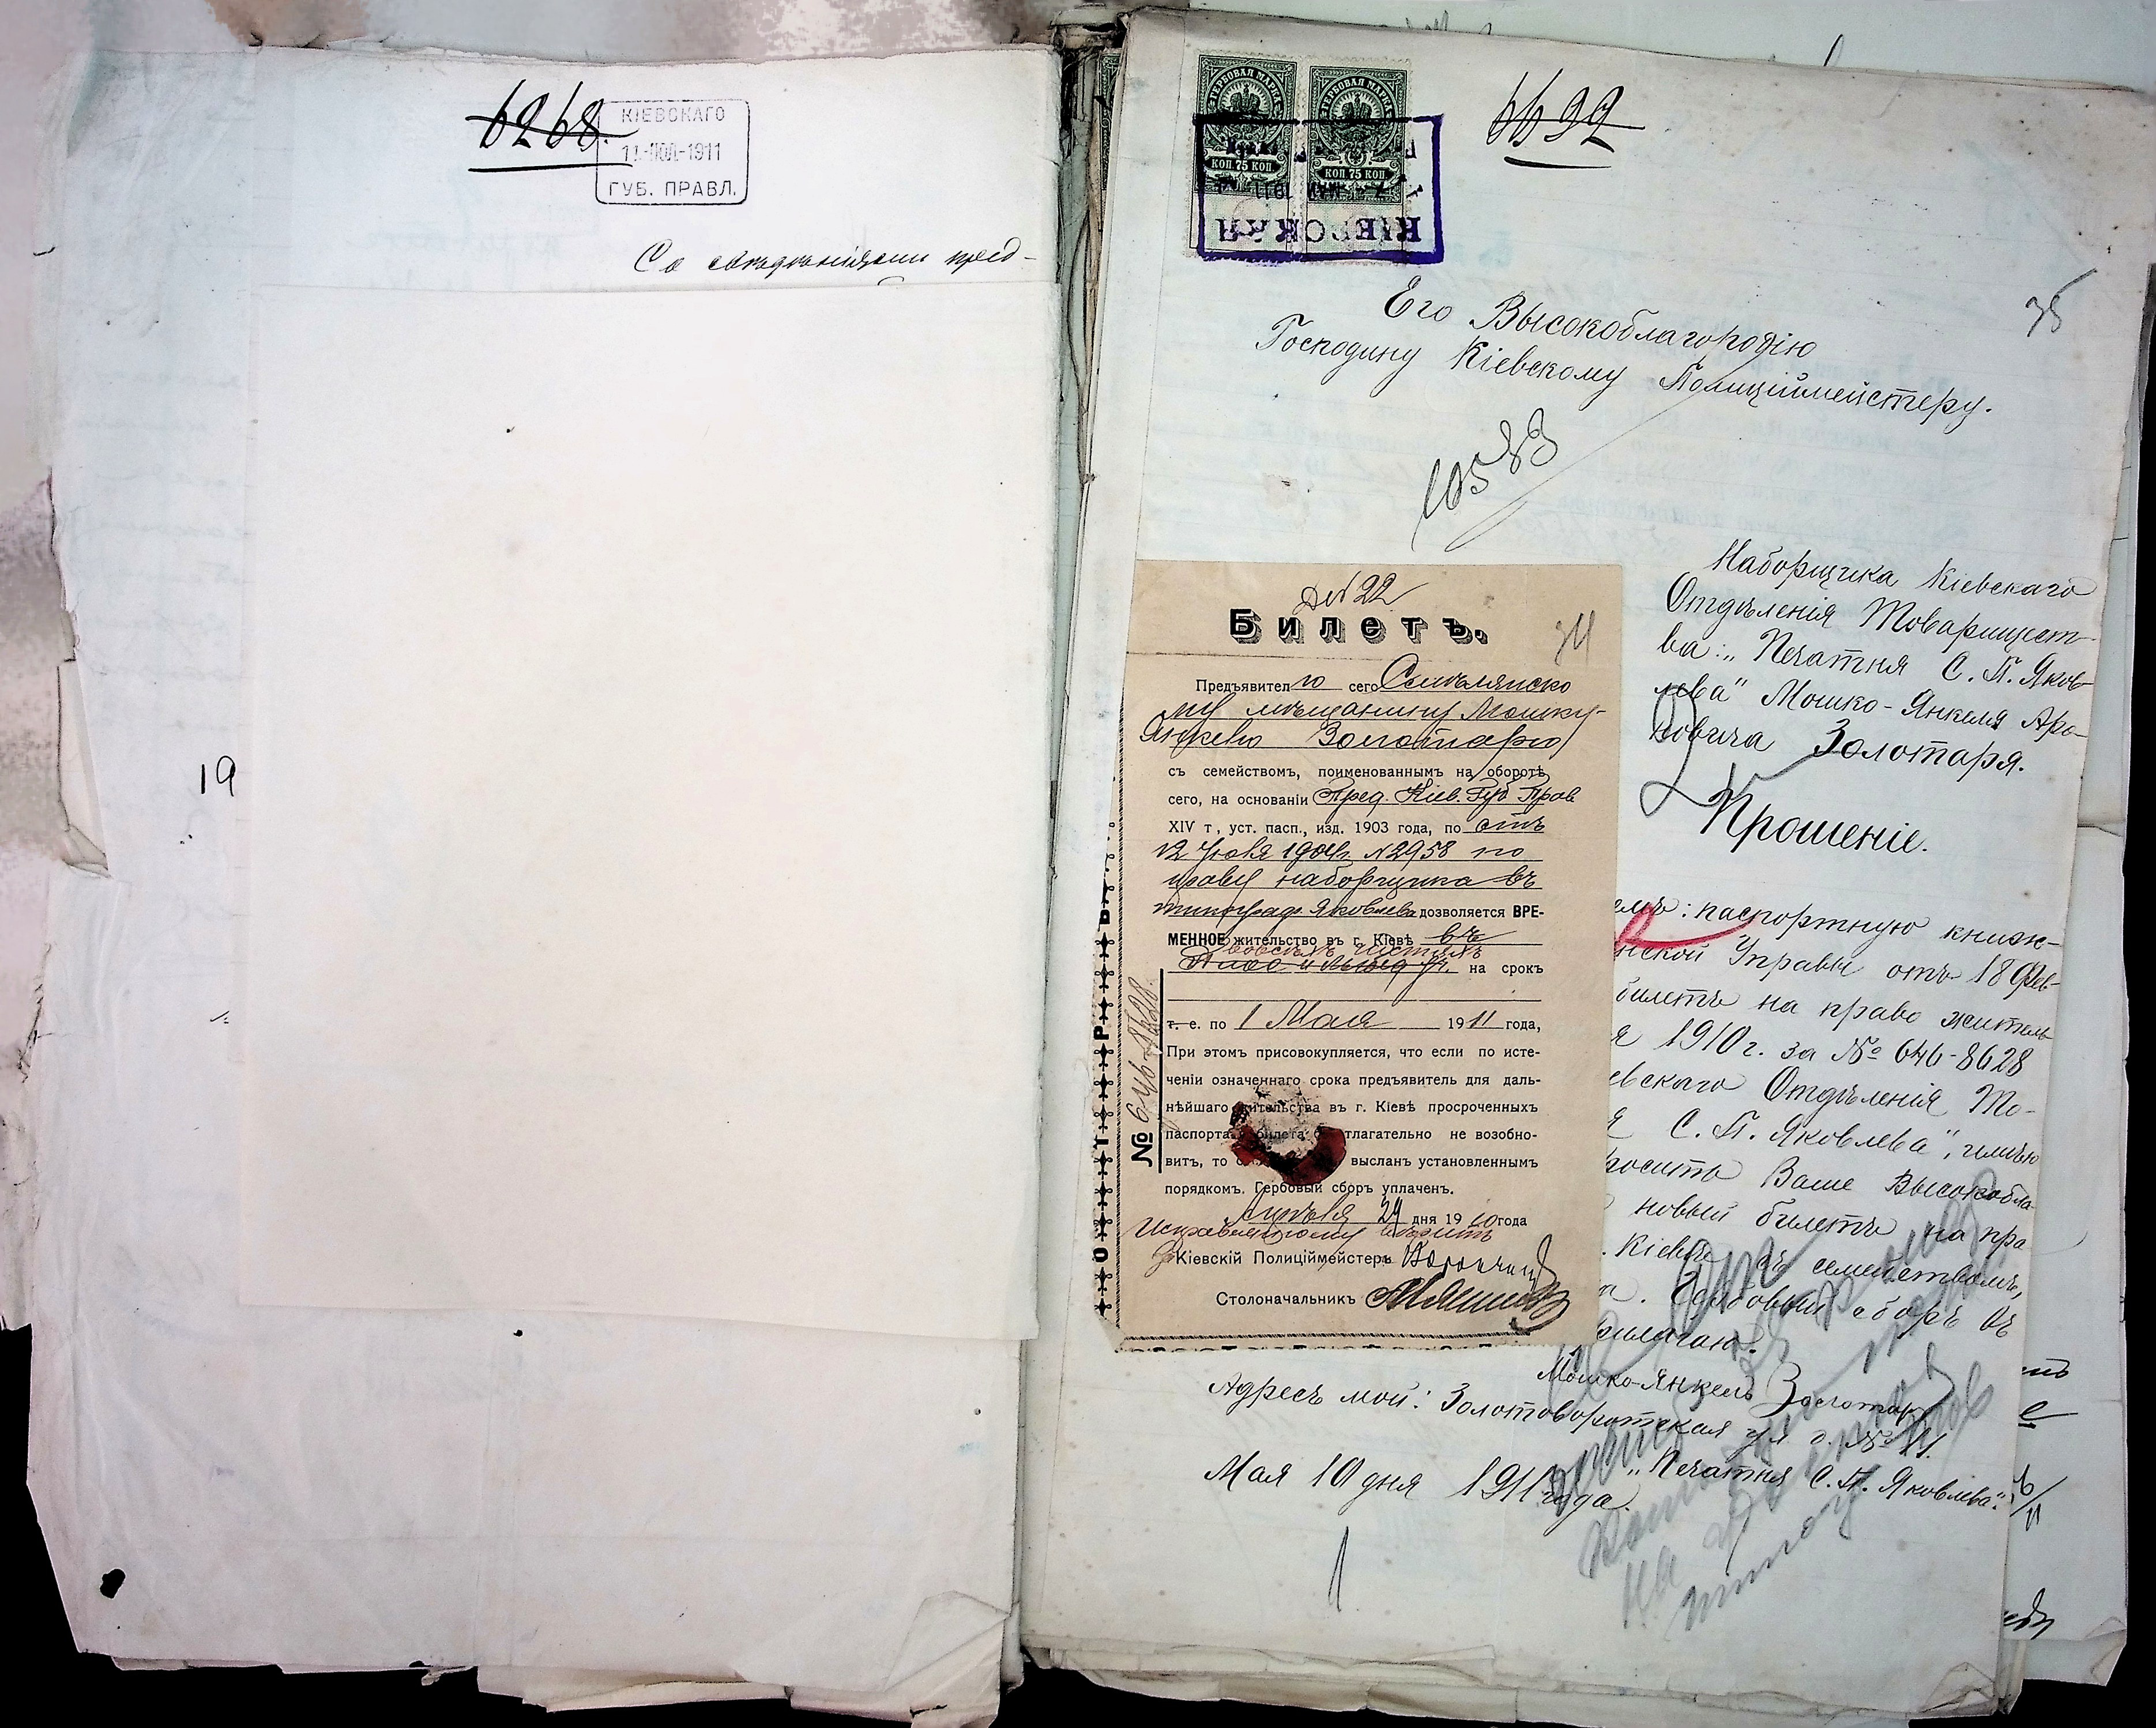 6268.
КІЕВСКАГО
11-ІЮЛ-1911
ГУБ. ПРАВЛ.
Со свѣдѣніями пред-
19
ГЕРБОВАЯ МАРКА
КОП. 75 КОП.
ГЕРБОВАЯ МАРКА
КОП. 75 КОП.
КІЕВСКАЯ
6622
35
Его Высокоблагородію
Господину Кіевскому Полиціймейстеру.
10583
Наборщика Кіевскаго
Отдѣленія Товарищест-
ва: „Печатня С. П. Яков-
лева" Мошко-Янкеля Аро-
новича Золотаря.
Прошеніе.
емъ: паспортную книж-
нской Управы отъ 18 Фев-
билетъ на право житель
я 1910 г. за № 646-8628
евскаго Отдѣленія То-
я С. П. Яковлева", имѣю
росить Ваше Высокобла-
новый билетъ на пра
. Кіевѣ съ семействомъ,
а. Гербовый сборъ въ
рилагаю.
Мошко-Янкель Золотарь
Адресъ мой: Золотоворотская ул. д. № 11.
„Печатня С. П. Яковлева".
Мая 10 дня 1911 года.
№ 22
34
Билетъ.
Предъявителю сего Смѣлянско
му мѣщанину Мошку-
Янкелю Золотарю
съ семействомъ, поименованнымъ на оборотѣ
сего, на основаніи Пред. Кіев. Губ. Прав
XIV т, уст. пасп., изд. 1903 года, по отъ
12 Іюля 1904г. №2958 по
праву наборщика въ
типограф. Яковлева дозволяется ВРЕ-
МЕННОЕ жительство въ г. Кіевѣ въ
во всѣхъ частяхъ
Плос. и Лыбед. уч. на срокъ
т. е. по 1 Мая 1911 года,
При этомъ присовокупляется, что если по исте-
ченіи означеннаго срока предъявитель для даль-
нѣйшаго жительства въ г. Кіевѣ просроченныхъ
паспорта билета тлагательно не возобно-
витъ, то высланъ установленнымъ
порядкомъ. Гербовый сборъ уплаченъ.
Апрѣля 29 дня 1910 года
Исправленному вѣрить
Кіевскій Полиціймейстеръ
Столоначальникъ
№ 646-8628